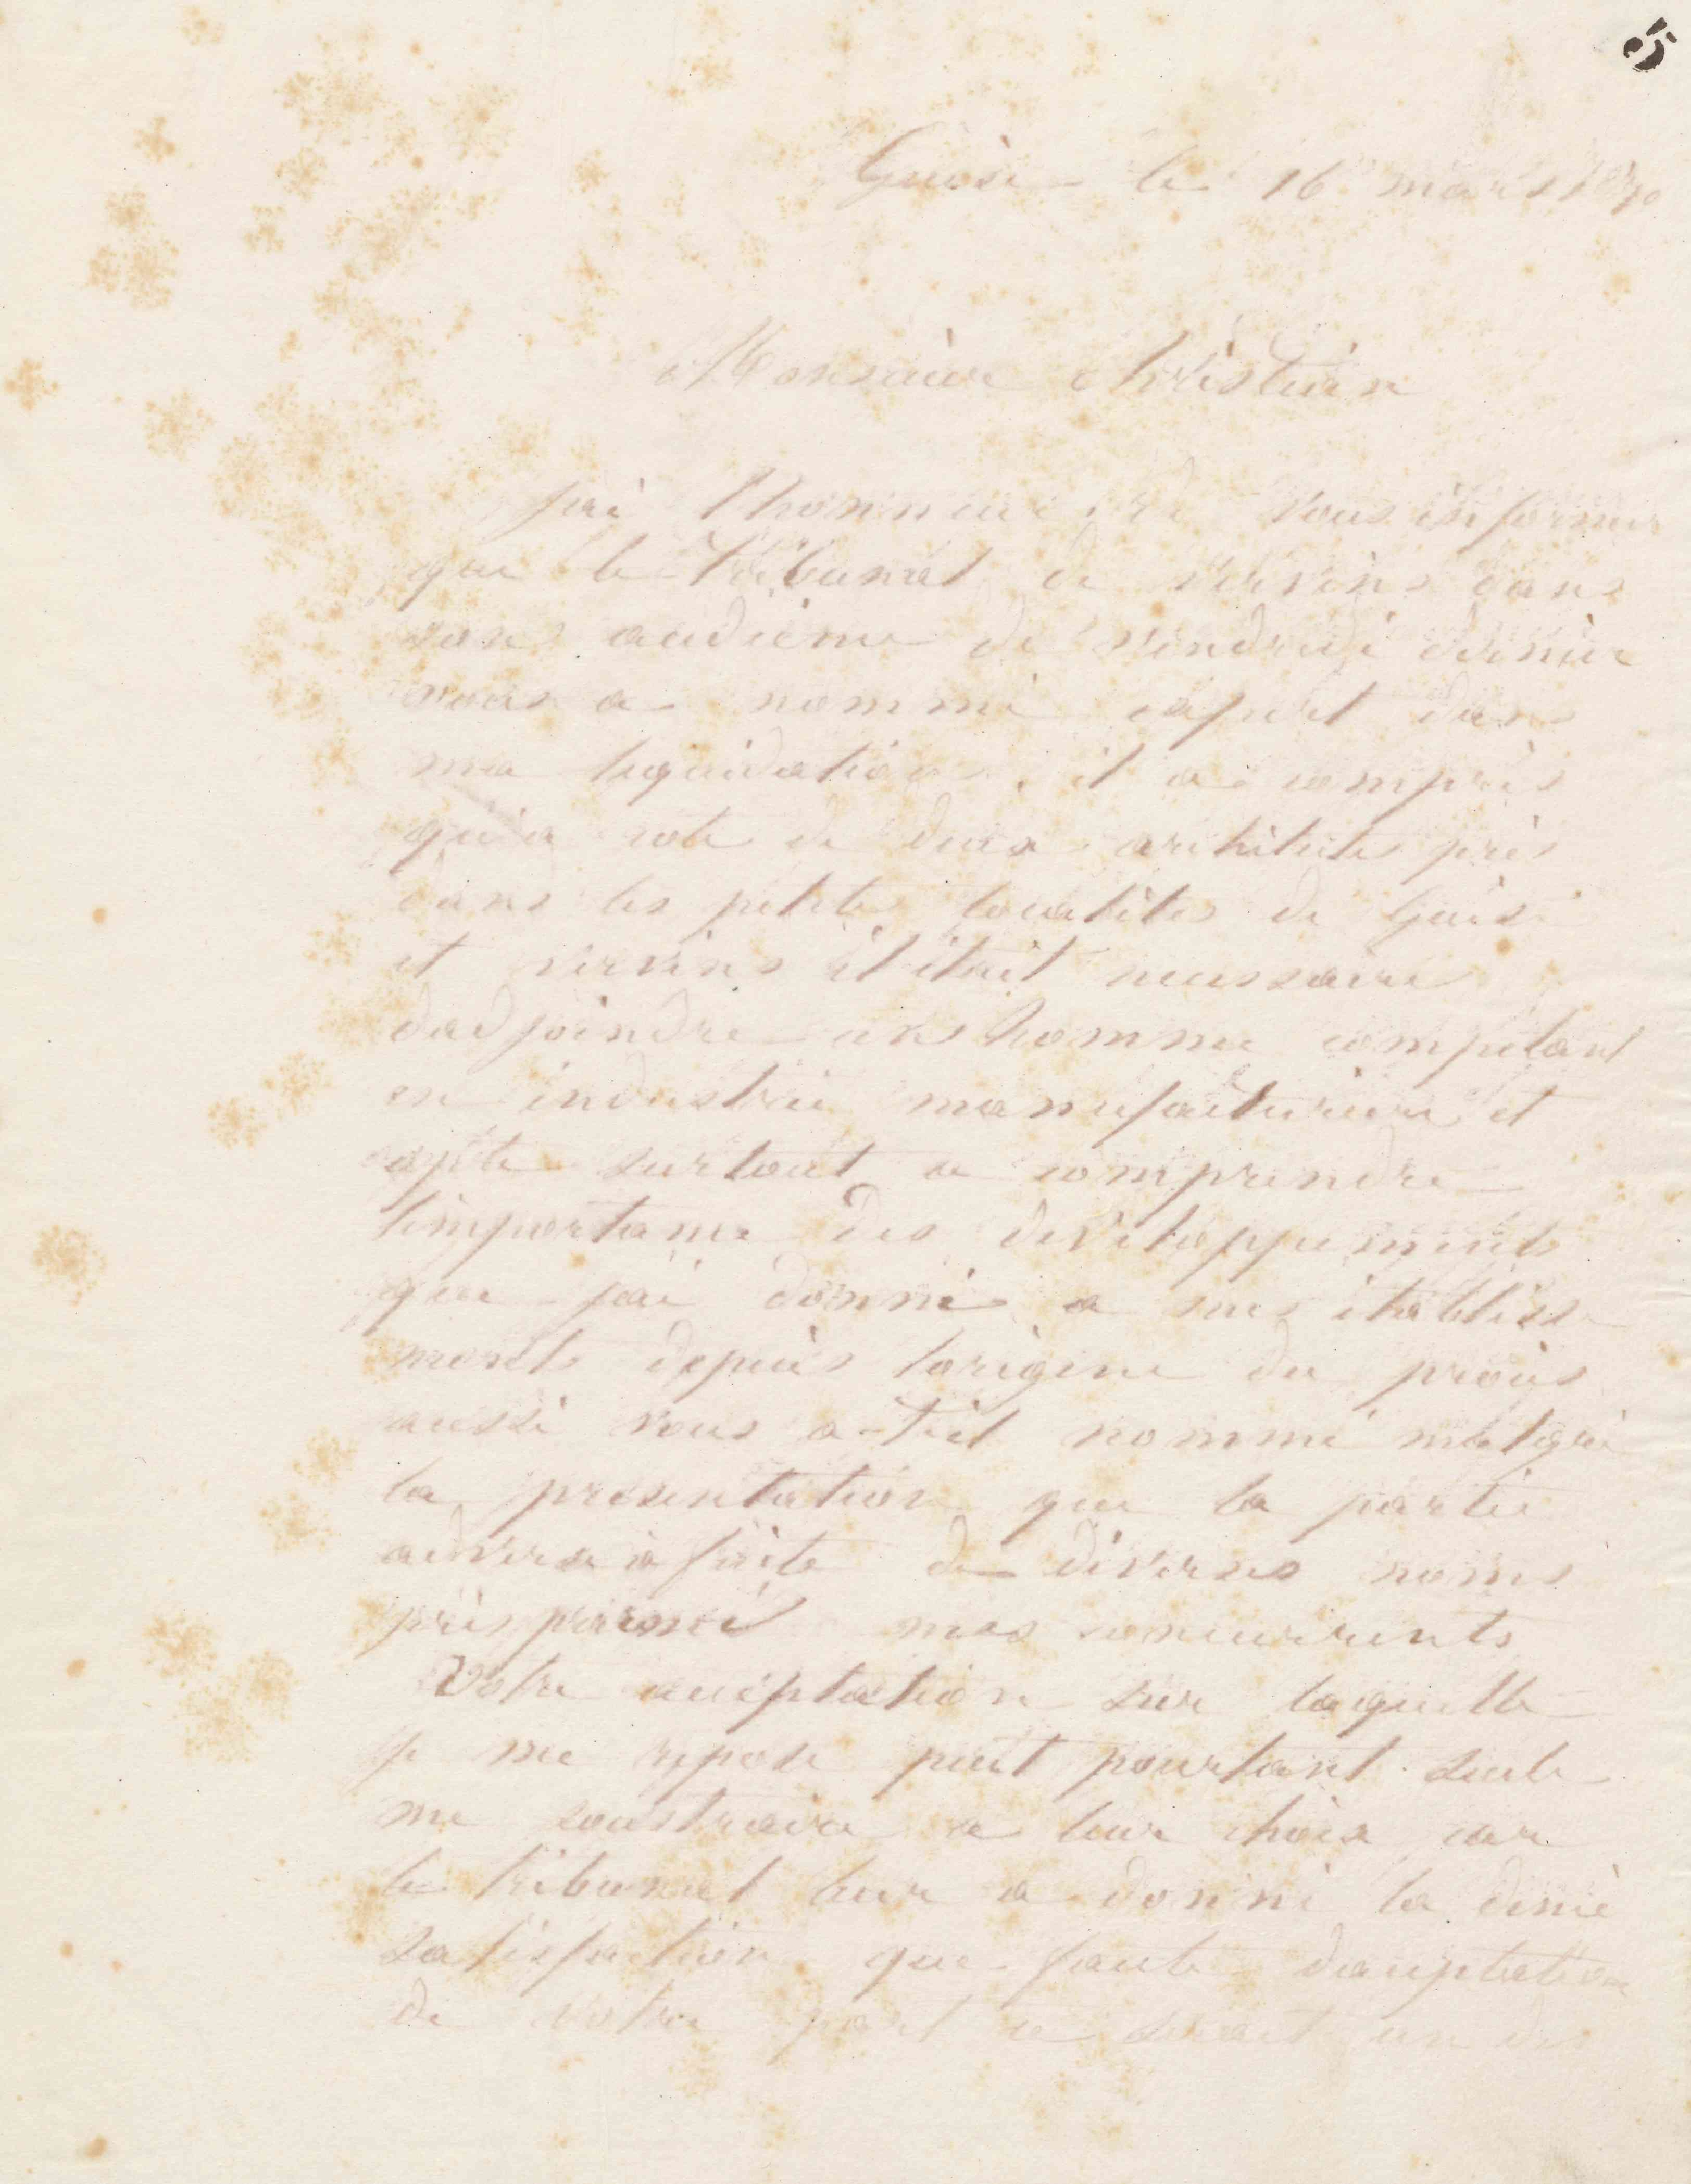 5
Guise le 16 mars 1870
Monsieur Christian
jai lhonneur de vous informer
que le Tribunal de vervins dans
son audience de vendredi dernier
vous a nommé expert dans
ma liquidation, il a compris
qu'a coté de deux architectes pris
dans les petites localités de Guise
et vervins il était necessaire
dadjoindre un homme competant
en industrie manufacturiere et
apte surtout a comprendre
limportance des developpements
que jai donné a mes établisse
ments depuis lorigine du procès
aussi vous a-t-il nommé malgré
la presentation que la partie
adverse a faite de divers noms
pris parmi mes concurrents
Votre acceptation sur laquelle
je me repose peut pourtant seule
me soustraire a leur choix car
le tribunal leur a donné la demie
satisfaction que faute dacceptation
de votre part ce serait un des